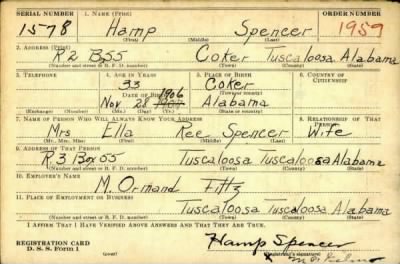 SERIAL NUMBER 1. NAME (Print) ORDER NUMBER
1578 Hamp Spencer 1959
(First) (Middle) (Last)
2. ADDRESS (Print)
R2 B55 Coker Tuscaloosa Alabama
(Number and street or R. F. D. number) (Town) (County) (State)
3. TELEPHONE 4. AGE IN YEARS 5. PLACE OF BIRTH 6. COUNTRY OF CITIZENSHIP
33 Coker
DATE OF BIRTH 1906 (Town or county)
Nov 28 Alabama
(Exchange) (Number) (Mo.) (Day) (Yr.) (State or country)
7. NAME OF PERSON WHO WILL ALWAYS KNOW YOUR ADDRESS 8. RELATIONSHIP OF THAT PERSON
Mrs Ella Ree Spencer Wife
(Mr., Mrs., Miss) (First) (Middle) (Last)
9. ADDRESS OF THAT PERSON
R3 Box 55 Tuscaloosa Tuscaloosa Alabama
(Number and street or R. F. D. number) (Town) (County) (State)
10. EMPLOYER'S NAME
M. Ormand Fitts
11. PLACE OF EMPLOYMENT OR BUSINESS
Tuscaloosa Tuscaloosa Alabama
(Number and street or R. F. D. number) (Town) (County) (State)
I AFFIRM THAT I HAVE VERIFIED ABOVE ANSWERS AND THAT THEY ARE TRUE.
REGISTRATION CARD Hamp Spencer
D. S. S. Form 1 (over) (Registrant's signature)